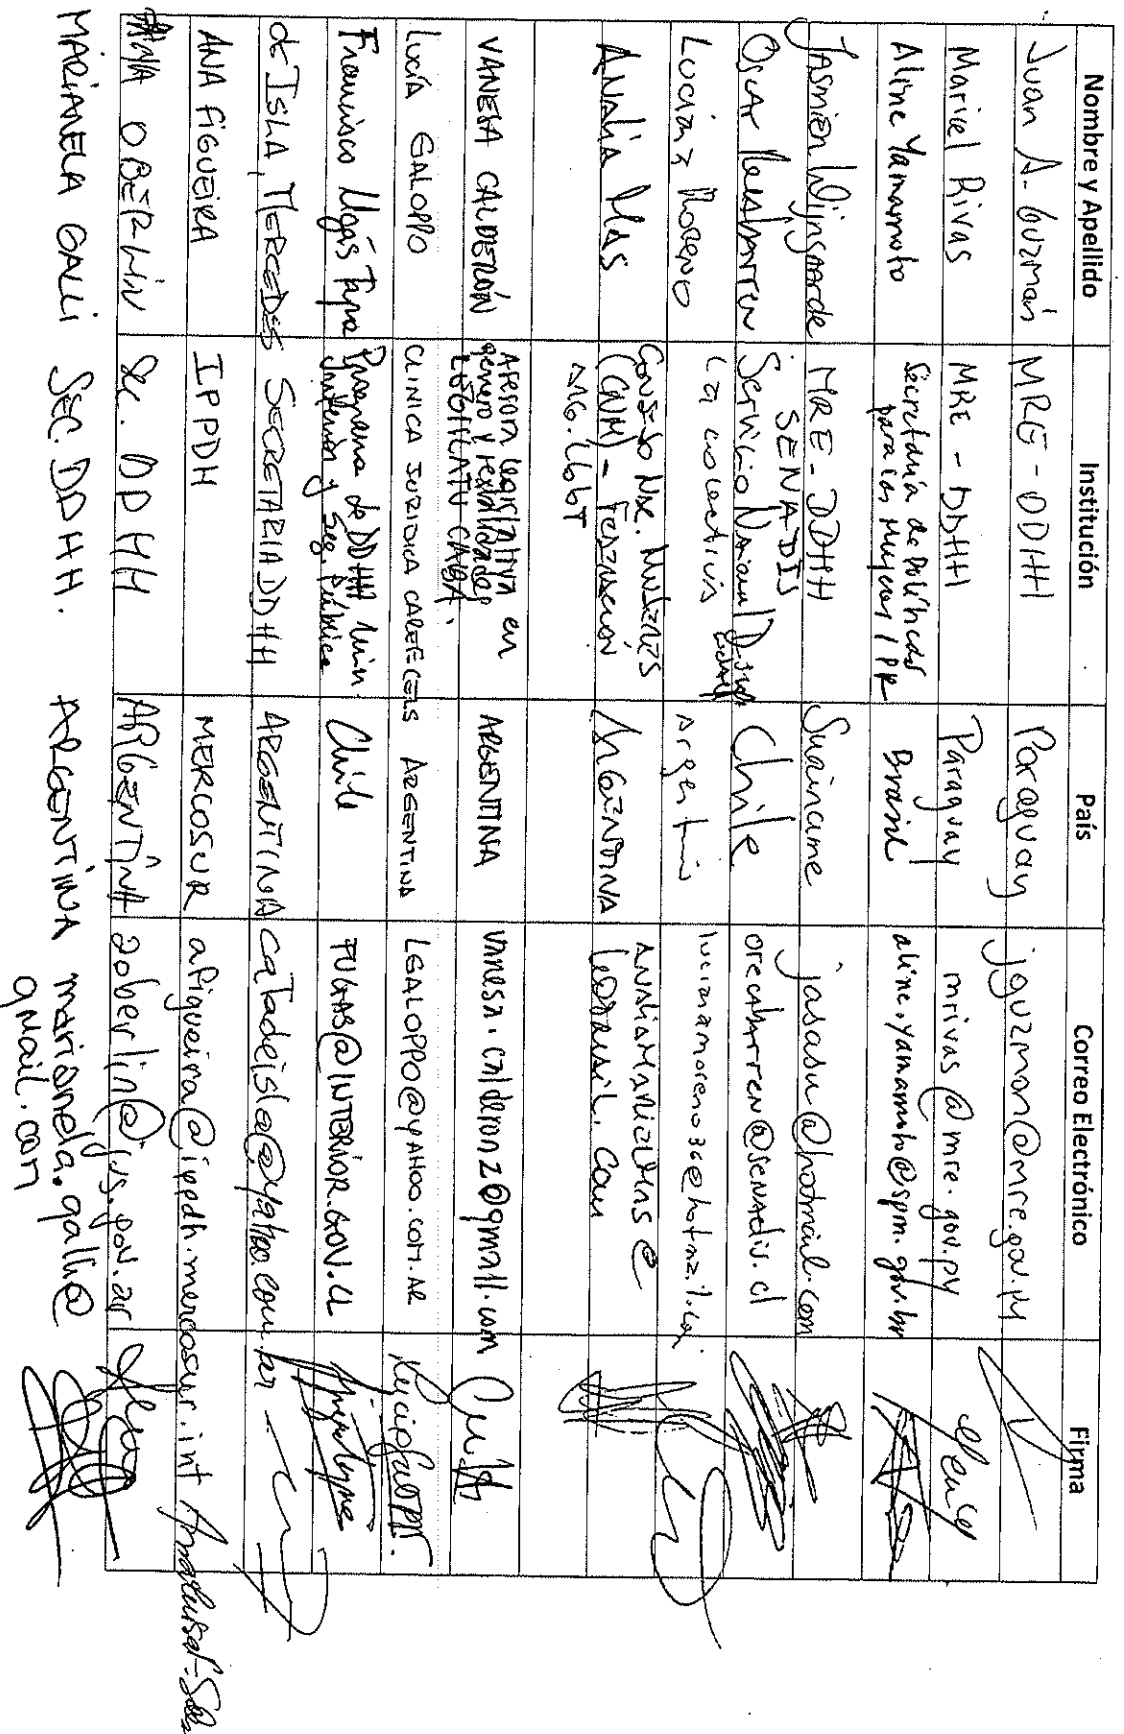 Nombre y Apellido Institución País Correo Electrónico Firma
Juan A. Guzmán MRE - DDHH Paraguay jguzman@mre.gov.py
Mariel Rivas MRE - DDHH Paraguay mrivas@mre.gov.py
Aline Yamamoto Secretaria de Políticas para as Mulheres / PR Brasil aline.yamamoto@spm.gov.br
Jasmien Wijngaarde MRE - DDHH Suriname jasasu@hotmail.com
Oscar SENADIS
Servicio Nacional Chile orecabarren@senadis.cl
Luciana Moreno La colectiva Argentina lucianamoreno36@hotmail.com
Analia Mas Consejo Nac. Mujeres
(CNM) - Federación Argentina
LGBT
VANESA CALDERÓN Asesora legislativa en
género y sexualidades
LEGISLATU CABA. ARGENTINA vanesa.calderonz@gmail.com
Lucía GALOPPO CLINICA JURIDICA CAREF CELS ARGENTINA LGALOPPO@YAHOO.COM.AR
Francisco Ugás Tapia Programa de DDHH Min.
Interior y Seg. Pública Chile FUGAS@INTERIOR.GOV.CL
de ISLA, MERCEDES SECRETARIA DDHH ARGENTINA catadeisla@yahoo.com.ar
ANA FIGUEIRA IPPDH MERCOSUR afigueira@ippdh.mercosur.int
OBERLIN Sec. DDHH ARGENTINA aoberlin@jus.gov.ar
MARIANELA GALLI SEC. DDHH. ARGENTINA marianela.galli@
gmail.com